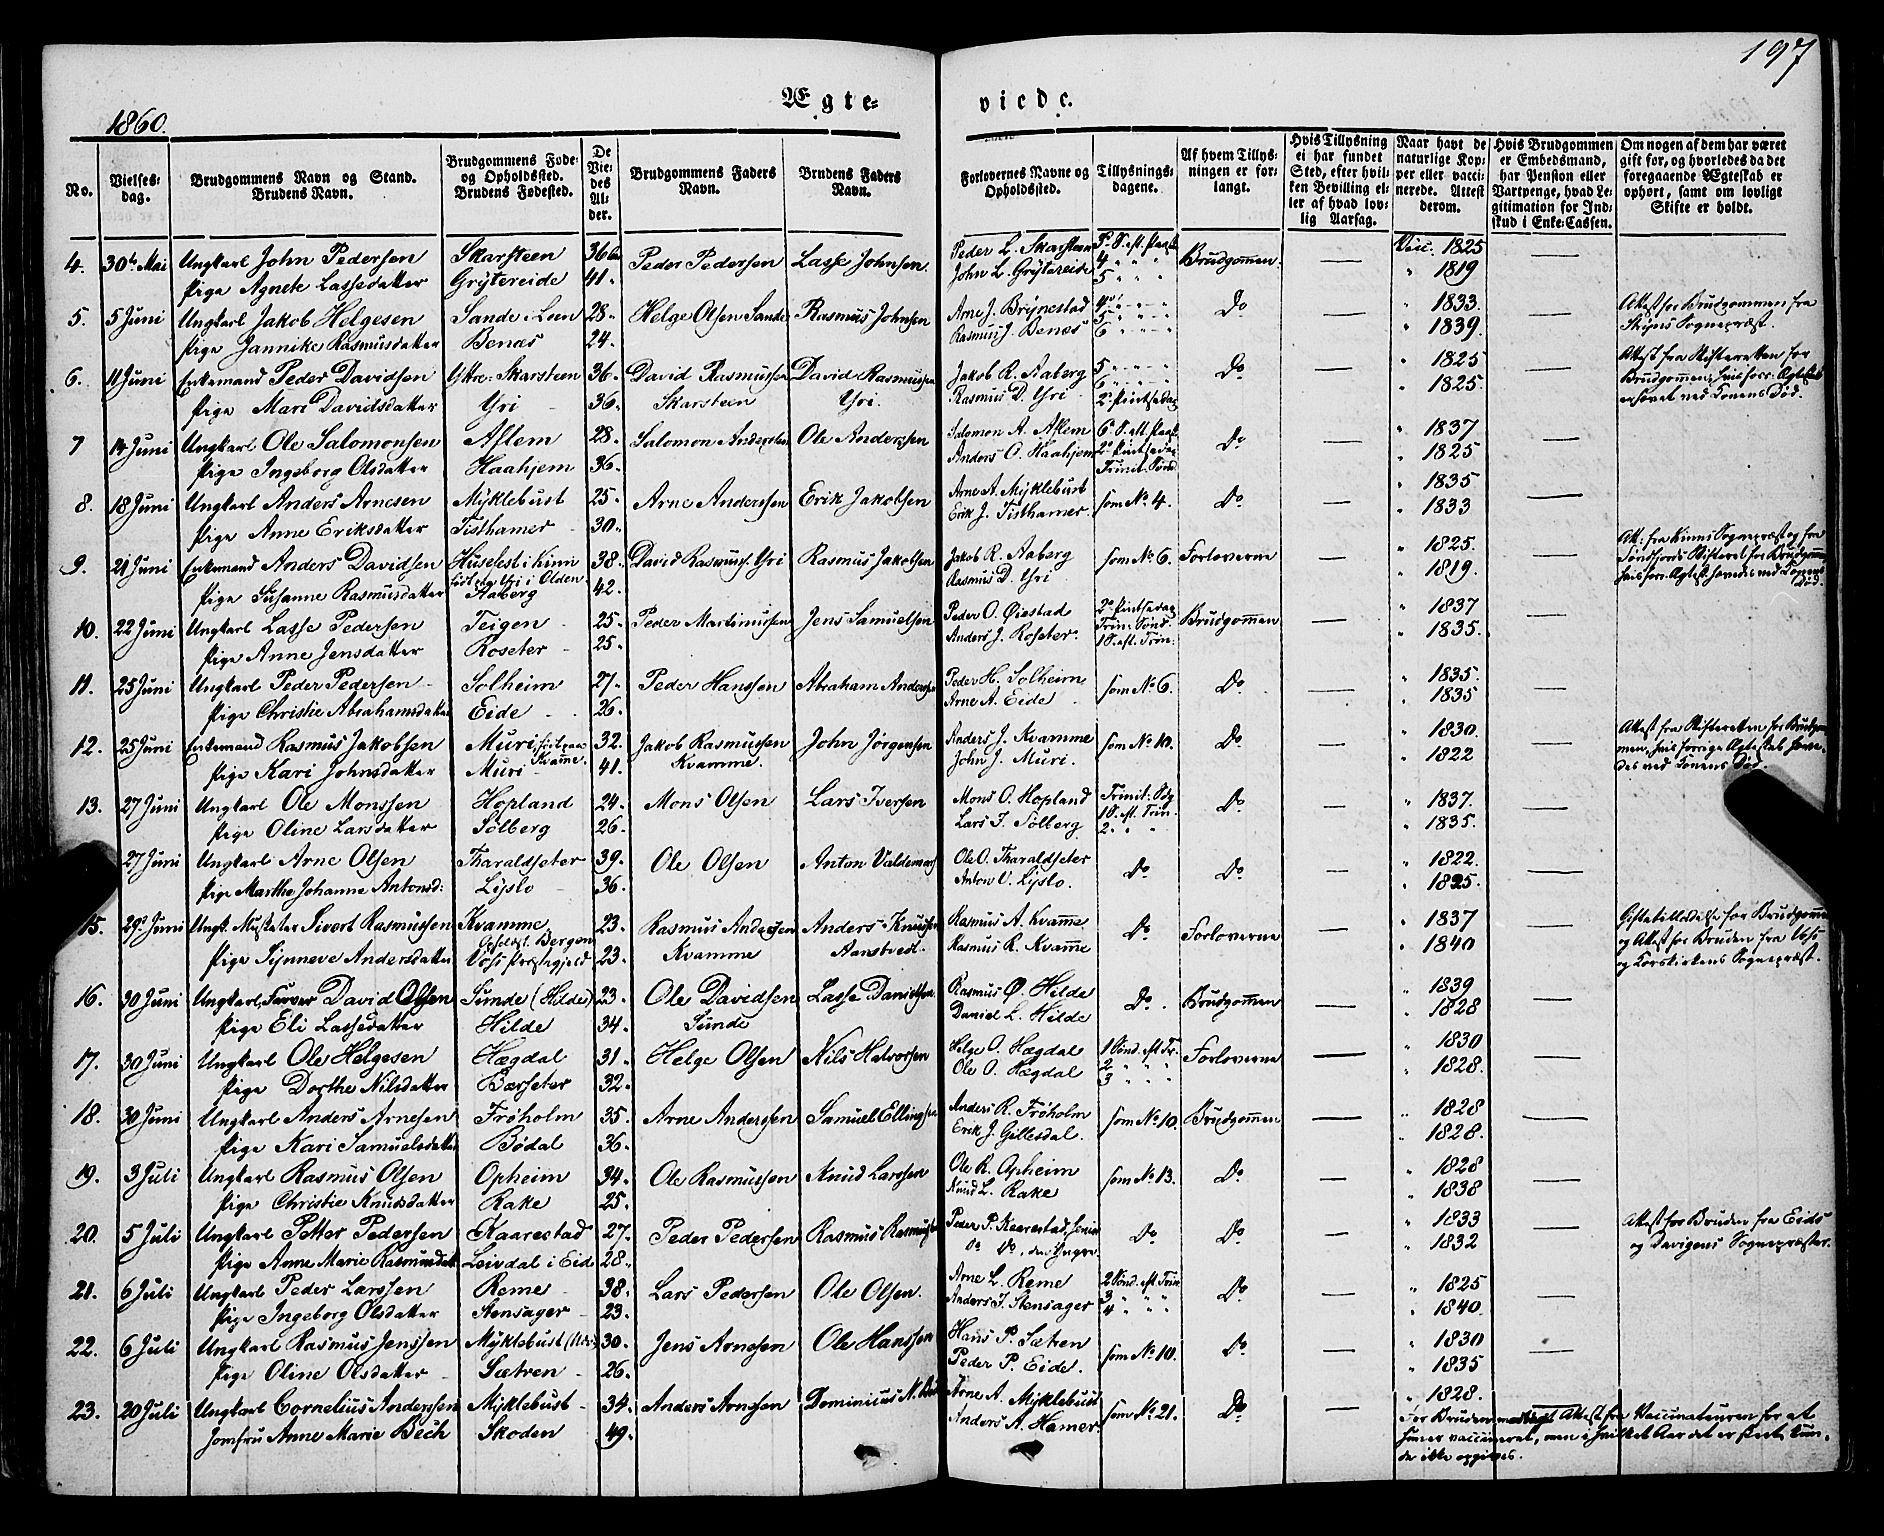 197
1860.
Ægte-
viede.
No.
Vielses-
dag.
Brudgommens Navn og Stand.
Brudens Navn.
Brudgommens Føde-
og Opholdssted.
Brudens Fødested.
De
Vie-
des
Al-
der.
Brudgommens Faders
Navn.
Brudens Faders
Navn.
Forlovernes Navne og
Opholdssted.
Tillysnings-
dagene.
Af hvem Tillys-
ningen er for-
langt.
Hvis Tillysning
ei har fundet
Sted, efter hvil-
ken Bevilling el-
ler af hvad lov-
lig Aarsag.
Naar havt de
naturlige Kop-
per eller vacci-
nerede. Attest
derom.
Hvis Brudgommen
er Embedsmand,
har Pension eller
Vartpenge, hvad Le-
gitimation for Ind-
skud i Enke-Cassen.
Om nogen af dem har været
gift før, og hvorledes da det
foregaaende Ægteskab er
ophørt, samt om lovligt
Skifte er holdt.
4. 30te Mai Ungkarl John Pedersen Skarsteen 36 Peder Pedersen Lasse Johnsen Peder L. Skarsteen Brudgommen — Vacc. 1825 —
Pige Agnete Lassedatter Grytereide 41. John L. Grytereide 4 " " " " 1819
5 " " "
5. 5 Juni Ungkarl Jakob Helgesen Sande i Loen 28. Helge Olsen Sande Rasmus Johnsen Arne J. Brynestad Do — " 1833. — Attest for Brudgommen fra
Pige Jannike Rasmusdatter Benæs 24. Rasmus J. Benæs 6 " " " " 1839. Stryns Sognepræst.
6. 11 Juni Enkemand Peder Davidsen Ytre-Skarsteen 36. David Rasmussen David Rasmussen Jakob R. Aaberg 5 " " " Do — " 1825 — Attest fra Skifteretten for
Pige Mari Davidsdatter Yri 36. Skarsteen Yri. Rasmus D. Yri 2den Pintsedag " 1825. Brudgommen, hvis forr. Ægtesk.
ophævet ved Konens Død.
7 14 Juni Ungkarl Ole Salomonsen Aflem 28. Salomon Andersen Ole Anderssen Salomon A. Aflem Do — " 1837 —
Pige Ingeborg Olsdatter Haahjem 36. Anders O. Haahjem 2den Pintsedag " 1825
Trinit. Sønd
8. 18 Juni Ungkarl Anders Arnesen Myklebust 25. Arne Anderssen Erik Jakobsen Arne A. Myklebust som No 4. Do — " 1835 —
Pige Anne Eriksdatter Tisthamer 30. Erik J. Tisthamer. " 1833
9. 21 Juni Enkemand Anders Davidsen Huselest i Kinn 38. David Rasmuss. Yri Rasmus Jakobsen Jakob R. Aaberg som No 6. Forloverne — " 1825. — Att: fra Kinns Sognepræst og fra
Pige Susanne Rasmusdatter Aaberg 42. Rasmus D. Yri " 1819. Søndfjords Skifteret for Brudgommen,
hvis forr. Ægtesk. hævedes ved Konens
Død.
10. 22 Juni Ungkarl Lasse Pedersen Teigen 25. Peder Martinussen Jens Samuelsen Peder O. Øiestad 2den Pintsedag Brudgommen — " 1837 —
Pige Anne Jensdatter Roseter 25. Anders J. Roseter. Trin: Sønd " 1835.
1 S. eft. Trin:
11. 25 Juni Ungkarl Peder Pedersen Solheim 27. Peder Hanssen Abraham Anderssen Peder H. Solheim som No 6. Do — " 1835. —
Pige Christie Abrahamsdatter Eide 26. Arne A. Eide " 1835
12. 25 Juni Enkemand Rasmus Jakobsen Muri, født paa Kvamme 32. Jakob Rasmussen John Jørgensen Anders J. Kvamme som No 10. Do — " 1830. — Attest fra Skifteretten for Brudgom-
Pige Kari Johnsdatter Muri 41. Kvamme. John J. Muri. " 1822 men, hvis forrige Ægteskab hæve-
des ved Konens Død.
13. 27 Juni Ungkarl Ole Monssen Hopland 24. Mons Olsen Lars Iversen Mons O. Hopland Trinit: Sdg Do — " 1837. —
Pige Oline Larsdatter Solberg 26. Lars I. Solberg 1 S. eft. Trin. " 1835.
2 " "
27 Juni Ungkarl Arne Olsen Tharaldseter 39. Ole Olsen Anton Valdemars Ole O. Tharaldseter Do Do — " 1822. —
Pige Marthe Johanne Antonsd: Lyslo 36. Anton V. Lyslo. " 1825.
15. 29 Juni Ungk. Musketer Sivert Rasmussen Kvamme 23. Rasmus Anderssen Anders Knudsen Rasmus A. Kvamme Do Forloverne — " 1837 — Giftetilladelse for Brudgommen
Opholdst. Bergen
Pige Synneve Andersdatter Voss Præstegjeld 23. Kvamme Aanstvedt. Rasmus R. Kvamme " 1840 og Attest for Bruden fra Voss
og Korskirkens Sognepræst.
16. 30 Juni Ungkarl, Farver David Olsen Sunde (Hilde) 23. Ole Davidsen Lasse Danielsen Rasmus Ø. Hilde Do. Brudgommen — " 1839 —
Pige Eli Lassedatter Hilde 34. Sunde Daniel L. Hilde " 1828
17. 30 Juni Ungkarl Ole Helgesen Hægdal 31. Helge Olsen Nils Halvorsen Helge O. Hægdal 1 Sønd. eft Tr. Forloverne — " 1830 —
Pige Dorthe Nilsdatter Bærseter 32. Ole O. Hægdal 2 " " " " 1828.
3 " " "
18. 30 Juni Ungkarl Anders Arnesen Frøholm 35. Arne Anderssen Samuel Ellingsen Anders R. Frøholm som No 10. Brudgommen — " 1828 —
Pige Kari Samuelsdatter Bødal 36. Erik J. Gillesdal. " 1828.
19. 3 Juli Ungkarl Rasmus Olsen Opheim 34. Ole Rasmussen Knud Larssen Ole R. Opheim som No 13. Do — " 1828 —
Pige Christie Knudsdatter Rake 25. Knud L. Rake " 1838
20. 5 Juli Ungkarl Petter Pedersen Kaarestad 27. Peder Pedersen Rasmus Rasmussen Peder P. Kaarestad, senior Do Do — " 1833 — Attest for Bruden fra Eids
Pige Anne Marie Rasmusdatt Leivdal i Eid 28. Do Do, den Yngre " 1832 og Davigens Sognepræster.
21. 6 Juli Ungkarl Peder Larssen Reme 38. Lars Pedersen Ole Olsen. Arne L. Reme 2 Sønd. eft Trin Do — " 1825 —
Pige Ingeborg Olsdatter Stensager 23. Anders J. Stensager 3 " " " " 1840.
4 " " "
22. 6 Juli Ungkarl Rasmus Jenssen Myklebust 30. Jens Arnesen Ole Hanssen Hans P. Sætren som No 10. Do — " 1830 —
Pige Oline Olsdatter Sætren 26. Peder P. Eide. " 1835
23. 20 Juli Ungkarl Cornelius Anderssen Myklebust 34. Anders Arnesen Dominicus N. Bech Arne A. Myklebust som No 21. Do — " 1828.
Jomfru Anne Marie Bech Skoden 49. Anders A. Hamer. For Bruden modtagt Attest fra Vaccinateuren for at
hun er vaccineret, men i hvilket Aar det er skeet, kun-
de ikke opgives.